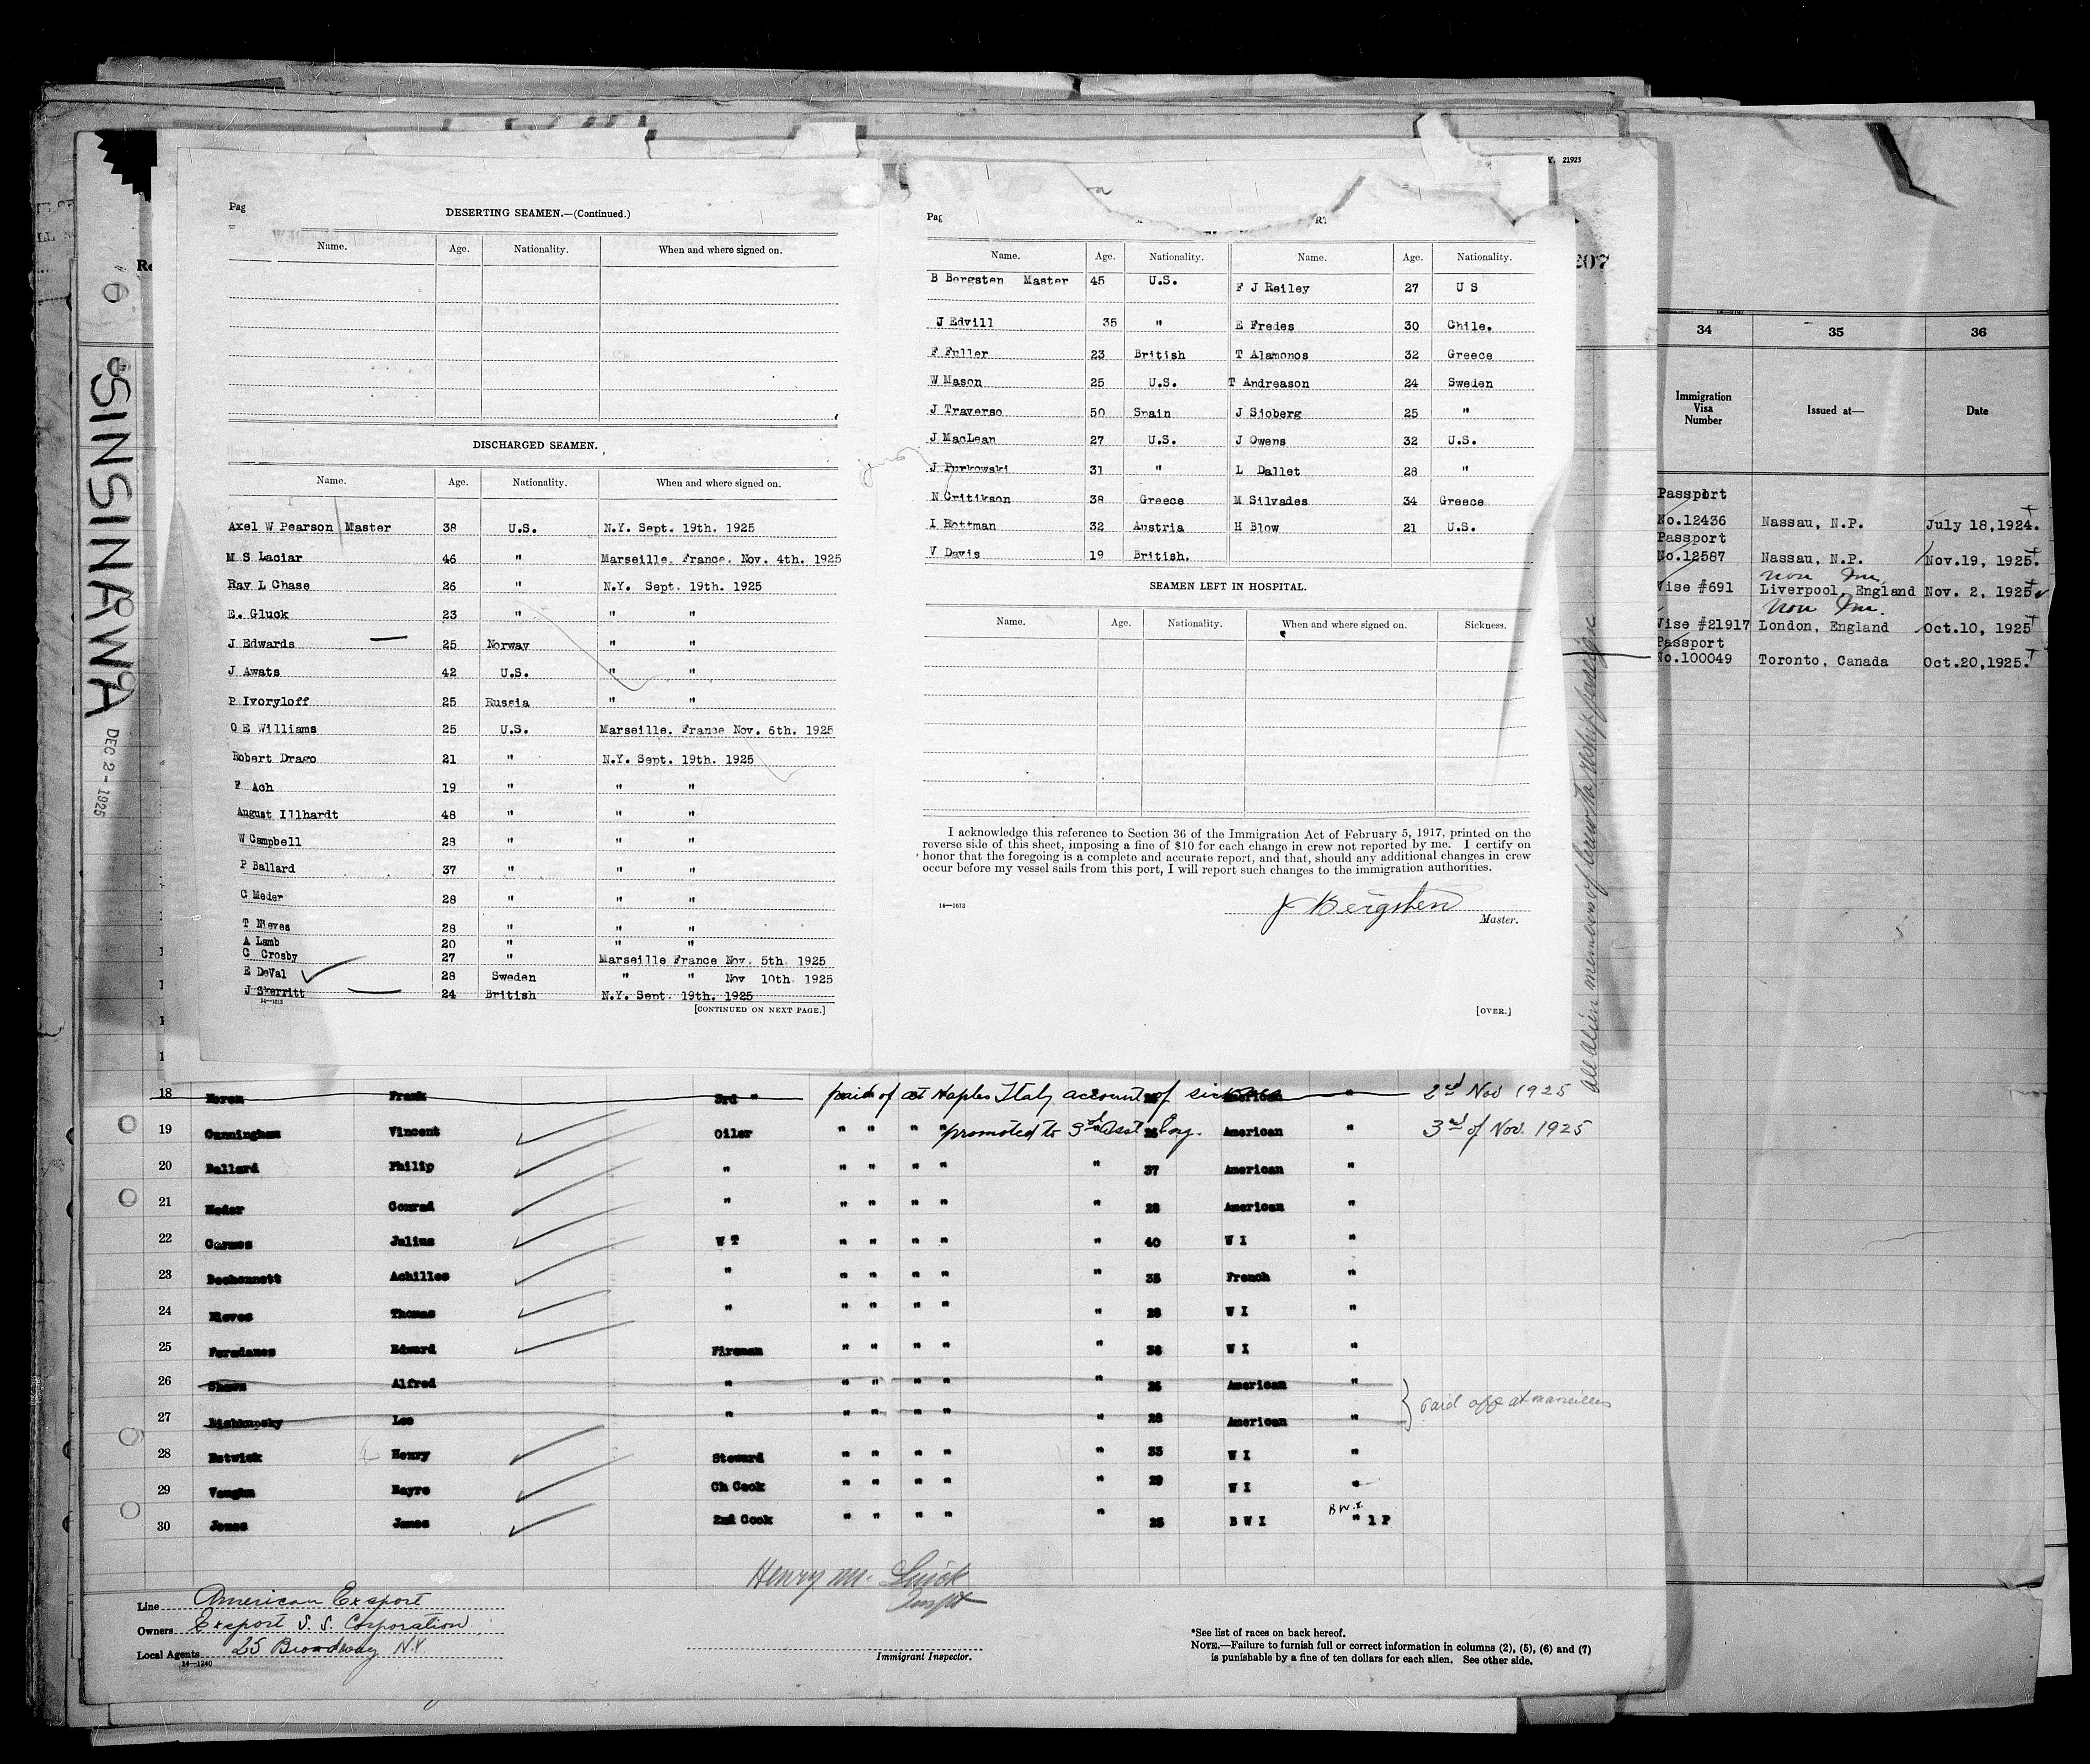 Y. 21923
207
SINSINAWA
DEC 2 - 1925
Pag
DESERTING SEAMEN.—(Continued.)
Name. Age. Nationality. When and where signed on.
DISCHARGED SEAMEN.
Name. Age. Nationality. When and where signed on.
Axel W Pearson Master 38 U.S. N.Y. Sept. 19th. 1925
M S Laciar 46 " Marseille. France. Nov. 4th. 1925
Ray L Chase 26 " N.Y. Sept. 19th. 1925
E. Gluck 23 " " "
J Edwards 25 Norway " "
J Awats 42 U.S. " "
P Ivoryloff 25 Russia " "
O E Williams 25 U.S. Marseille. France Nov. 6th. 1925
Robert Drago 21 " N.Y. Sept. 19th. 1925
F Ach 19 " " "
August Illhardt 48 " " "
W Campbell 28 " " "
P Ballard 37 " " "
C Meder 28 " " "
T Nieves 28 " " "
A Lamb 20 " " "
C Crosby 27 " Marseille France Nov. 5th. 1925
E DeVal 28 Sweden " " Nov 10th. 1925
J Skerritt 24 British N.Y. Sept. 19th. 1925
14—1613
[CONTINUED ON NEXT PAGE.]
Pag
Name. Age. Nationality. Name. Age. Nationality.
B Bergsten Master 45 U.S. F J Reiley 27 U S
J Edvill 35 " E Fredes 30 Chile.
F Fuller 23 British T Alamonos 32 Greece
W Mason 25 U.S. T Andreason 24 Sweden
J Traverso 50 Spain J Sjoberg 25 "
J MacLean 27 U.S. J Owens 32 U.S.
J Purkowski 31 " L Dallet 28 "
N Critikson 38 Greece M Silvades 34 Greece
I Rottman 32 Austria H Blow 21 U.S.
V Davis 19 British.
SEAMEN LEFT IN HOSPITAL.
Name. Age. Nationality. When and where signed on. Sickness.
I acknowledge this reference to Section 36 of the Immigration Act of February 5, 1917, printed on the
reverse side of this sheet, imposing a fine of $10 for each change in crew not reported by me. I certify on
honor that the foregoing is a complete and accurate report, and that, should any additional changes in crew
occur before my vessel sails from this port, I will report such changes to the immigration authorities.
Bergsten
14—1613
Master.
[OVER.]
All alien members of crew to reship foreign
34 35 36
Immigration Visa Number Issued at— Date
Passport
No.12436 Nassau, N.P. July 18,1924.
Passport
No.12587 Nassau, N.P. Nov.19, 1925.
non Im.
Vise #691 Liverpool, England Nov. 2, 1925
Non Im.
Vise #21917 London, England Oct.10, 1925
Passport
No.100049 Toronto, Canada Oct.20,1925.
18 Frank 3rd " paid of at Naples Italy account of American " 2nd Nov 1925
19 Cunningham Vincent Oiler " " " " promoted to 3rd Asst Eng. American " 3rd of Nov. 1925
20 Ballard Philip " " " " " " 37 American "
21 Meder Conrad " " " " " " 28 American "
22 Julius W T " " " " " 40 W I "
23 Achilles " " " " " " 35 French "
24 Nieves Thomas " " " " " " 28 W I "
25 Edward Fireman " " " " " 38 W I "
26 Alfred " " " " " " American "
27 Leo " " " " " " 28 American "
Paid off at Marseilles
28 Henry Steward " " " " " W I "
29 Vaughn Ch Cook " " " " " 29 W I "
B W.I.
30 Jones James 2nd Cook " " " " " 25 B W I " 1 P
Henry M.
Inspt
Line American Export
Owners Export S. S. Corporation
Local Agents 25 Broadway N.Y
14—1240
Immigrant Inspector.
*See list of races on back hereof.
NOTE.—Failure to furnish full or correct information in columns (2), (5), (6) and (7)
is punishable by a fine of ten dollars for each alien. See other side.